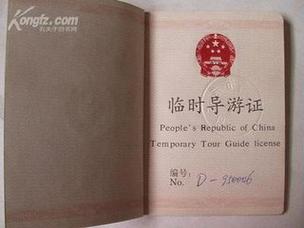 Kongfz.com
孔夫子旧书网
临时导游证
People's Republic of China
Temporary Tour Guide license
编号:
No. D-950006